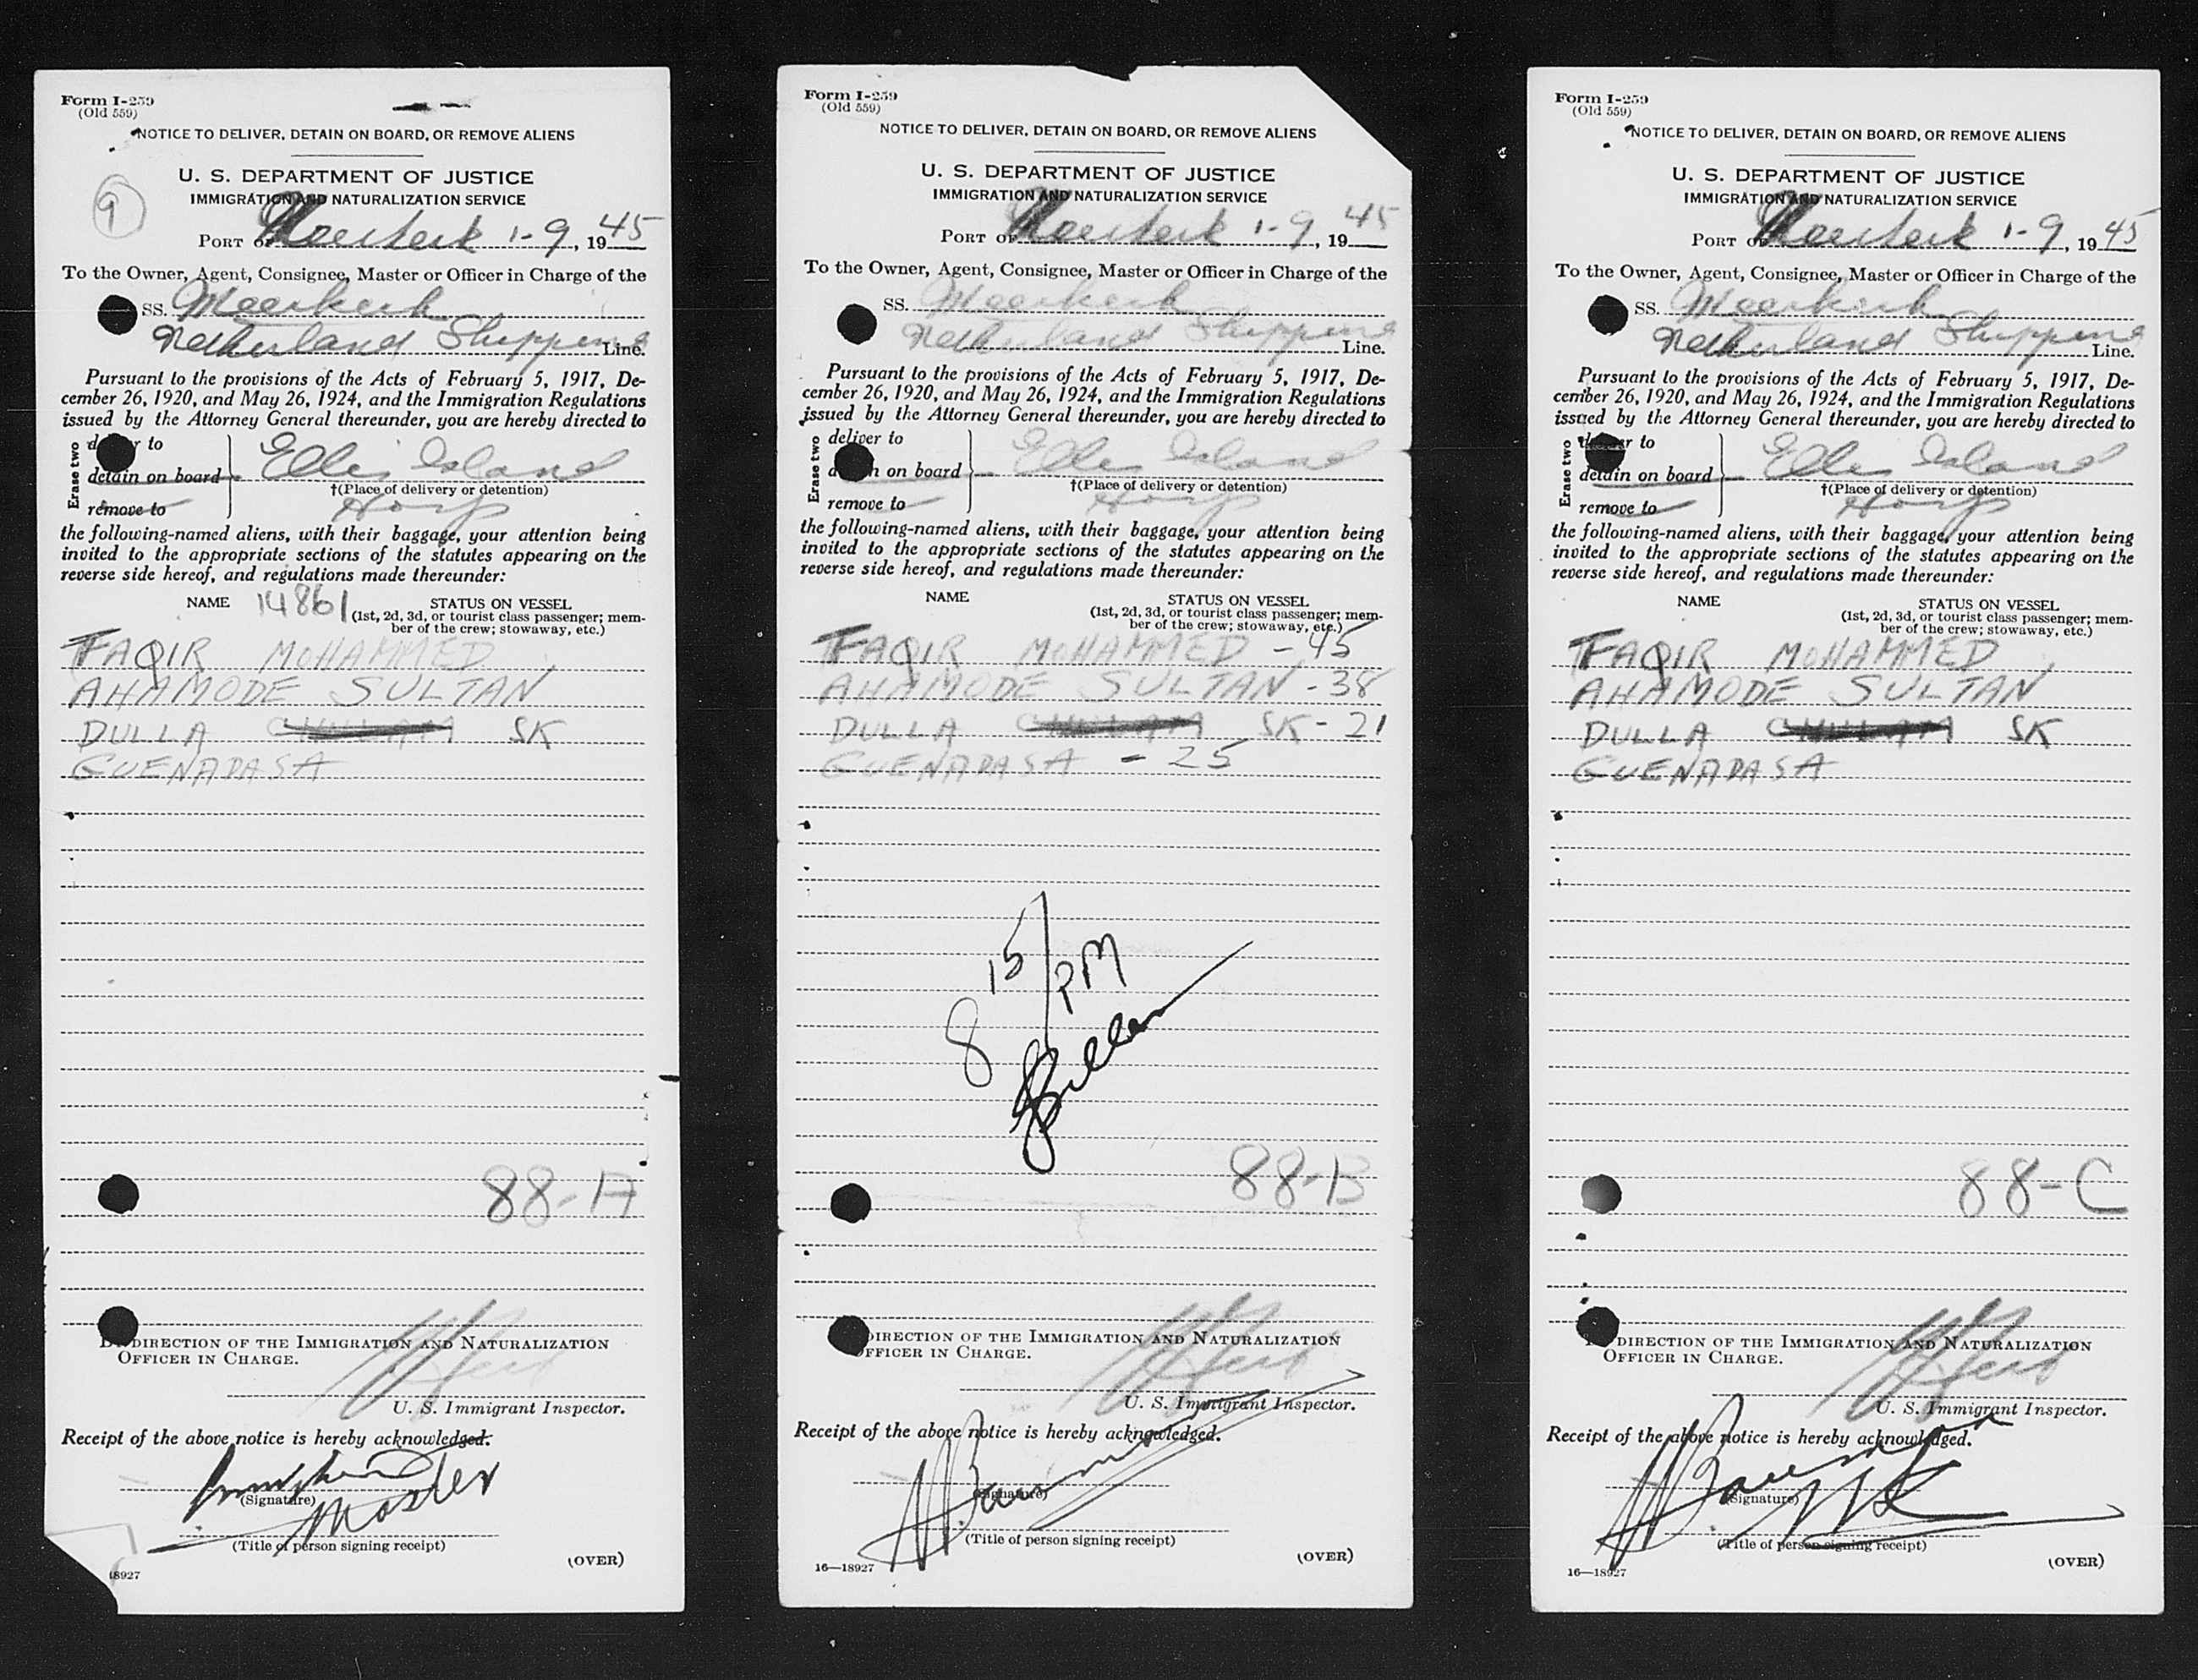 Form I-259
(Old 559)
NOTICE TO DELIVER, DETAIN ON BOARD, OR REMOVE ALIENS
U. S. DEPARTMENT OF JUSTICE
IMMIGRATION AND NATURALIZATION SERVICE
9
PORT OF 1-9, 1945
To the Owner, Agent, Consignee, Master or Officer in Charge of the
SS. Meerkerk
Netherland Shipping Line.
Pursuant to the provisions of the Acts of February 5, 1917, De-
cember 26, 1920, and May 26, 1924, and the Immigration Regulations
issued by the Attorney General thereunder, you are hereby directed to
Erase two
to
detain on board Ellis Island
†(Place of delivery or detention)
remove to Hosp
the following-named aliens, with their baggage, your attention being
invited to the appropriate sections of the statutes appearing on the
reverse side hereof, and regulations made thereunder:
NAME 14861 STATUS ON VESSEL
(1st, 2d, 3d, or tourist class passenger; mem-
ber of the crew; stowaway, etc.)
FAQIR MOHAMMED
AHAMODE SULTAN
DULLA SK
GUENADASA
88-A
DIRECTION OF THE IMMIGRATION AND NATURALIZATION
OFFICER IN CHARGE.
U. S. Immigrant Inspector.
Receipt of the above notice is hereby acknowledged.
(Signature)
Master
(Title of person signing receipt)
(OVER)
18927
Form I-259
(Old 559)
NOTICE TO DELIVER, DETAIN ON BOARD, OR REMOVE ALIENS
U. S. DEPARTMENT OF JUSTICE
IMMIGRATION AND NATURALIZATION SERVICE
PORT OF 1-9, 1945
To the Owner, Agent, Consignee, Master or Officer in Charge of the
SS. Meerkerk
Netherland Shipping Line.
Pursuant to the provisions of the Acts of February 5, 1917, De-
cember 26, 1920, and May 26, 1924, and the Immigration Regulations
issued by the Attorney General thereunder, you are hereby directed to
Erase two
deliver to
on board Ellis Island
†(Place of delivery or detention)
remove to Hosp
the following-named aliens, with their baggage, your attention being
invited to the appropriate sections of the statutes appearing on the
reverse side hereof, and regulations made thereunder:
NAME STATUS ON VESSEL
(1st, 2d, 3d, or tourist class passenger; mem-
ber of the crew; stowaway, etc.)
FAQIR MOHAMMED - 45
AHAMODE SULTAN - 38
DULLA SK - 21
GUENADASA - 25
8 15/PM
88-B
DIRECTION OF THE IMMIGRATION AND NATURALIZATION
OFFICER IN CHARGE.
U. S. Immigrant Inspector.
Receipt of the above notice is hereby acknowledged.
(Signature)
(Title of person signing receipt)
(OVER)
16—18927
Form I-259
(Old 559)
NOTICE TO DELIVER, DETAIN ON BOARD, OR REMOVE ALIENS
U. S. DEPARTMENT OF JUSTICE
IMMIGRATION AND NATURALIZATION SERVICE
PORT OF 1-9, 1945
To the Owner, Agent, Consignee, Master or Officer in Charge of the
SS. Meerkerk
Netherland Shipping Line.
Pursuant to the provisions of the Acts of February 5, 1917, De-
cember 26, 1920, and May 26, 1924, and the Immigration Regulations
issued by the Attorney General thereunder, you are hereby directed to
Erase two
to
detain on board Ellis Island
†(Place of delivery or detention)
remove to Hosp
the following-named aliens, with their baggage, your attention being
invited to the appropriate sections of the statutes appearing on the
reverse side hereof, and regulations made thereunder:
NAME STATUS ON VESSEL
(1st, 2d, 3d, or tourist class passenger; mem-
ber of the crew; stowaway, etc.)
FAQIR MOHAMMED
AHAMODE SULTAN
DULLA SK
GUENADASA
88-C
DIRECTION OF THE IMMIGRATION AND NATURALIZATION
OFFICER IN CHARGE.
U. S. Immigrant Inspector.
Receipt of the above notice is hereby acknowledged.
(Signature)
(Title of person signing receipt)
(OVER)
16—18927